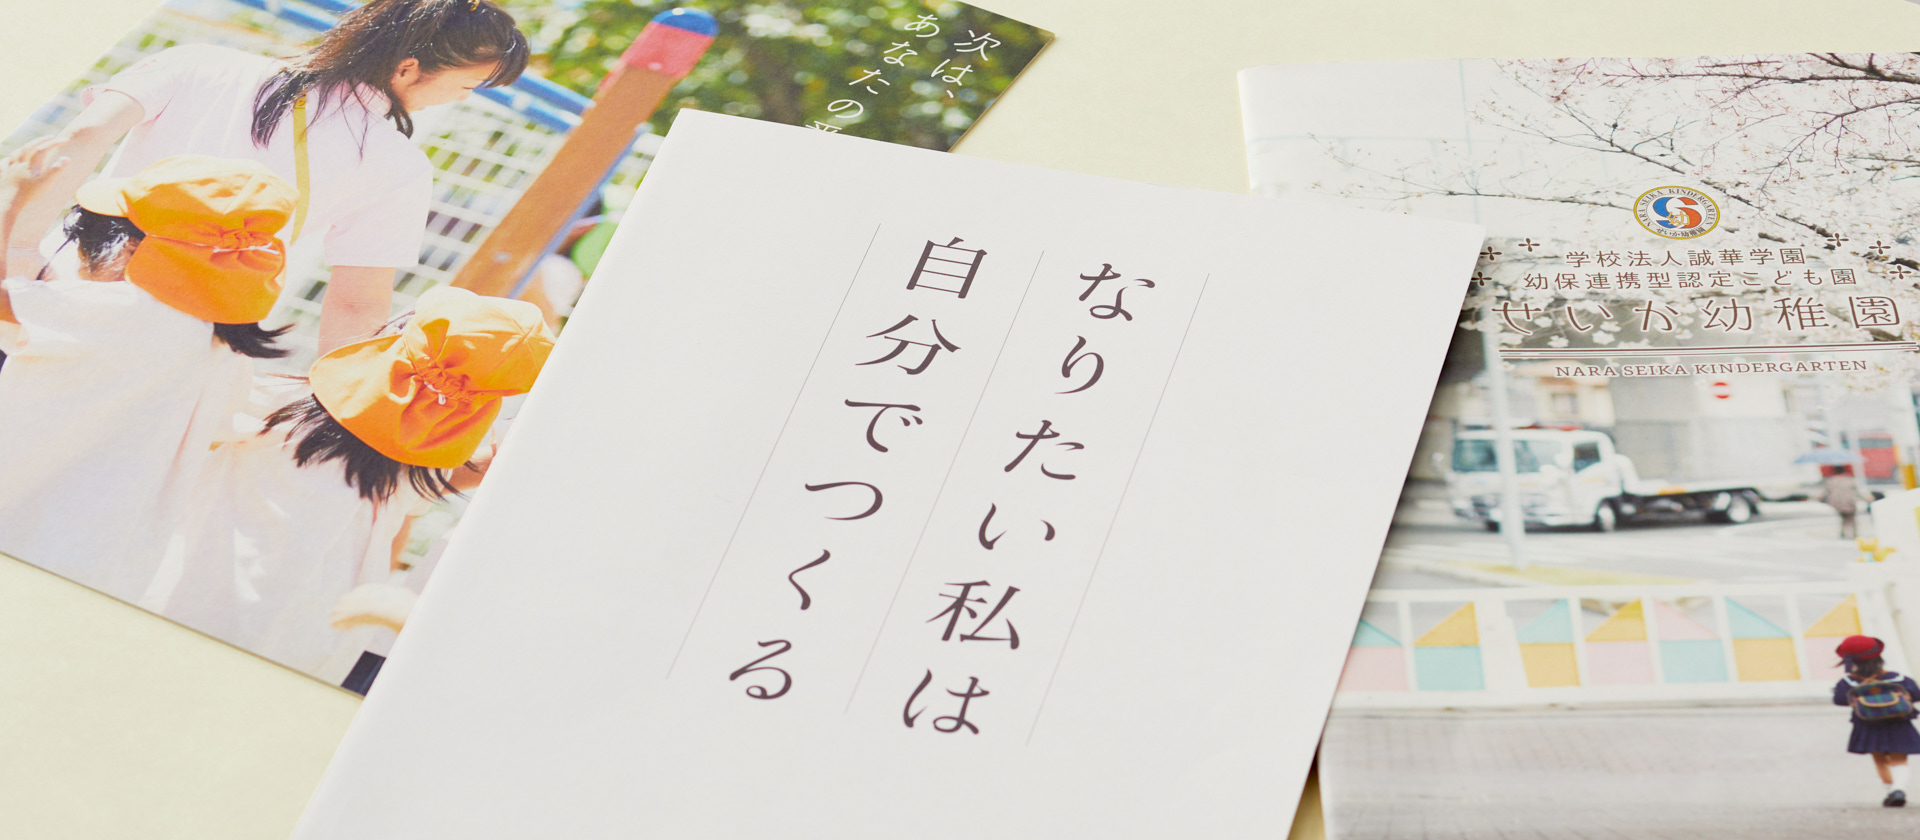 次は、
あなたの
なりたい私は
自分でつくる
NARA SEIKA KINDERGARTEN
せいか幼稚園
学校法人誠華学園
幼保連携型認定こども園
せいか幼稚園
NARA SEIKA KINDERGARTEN